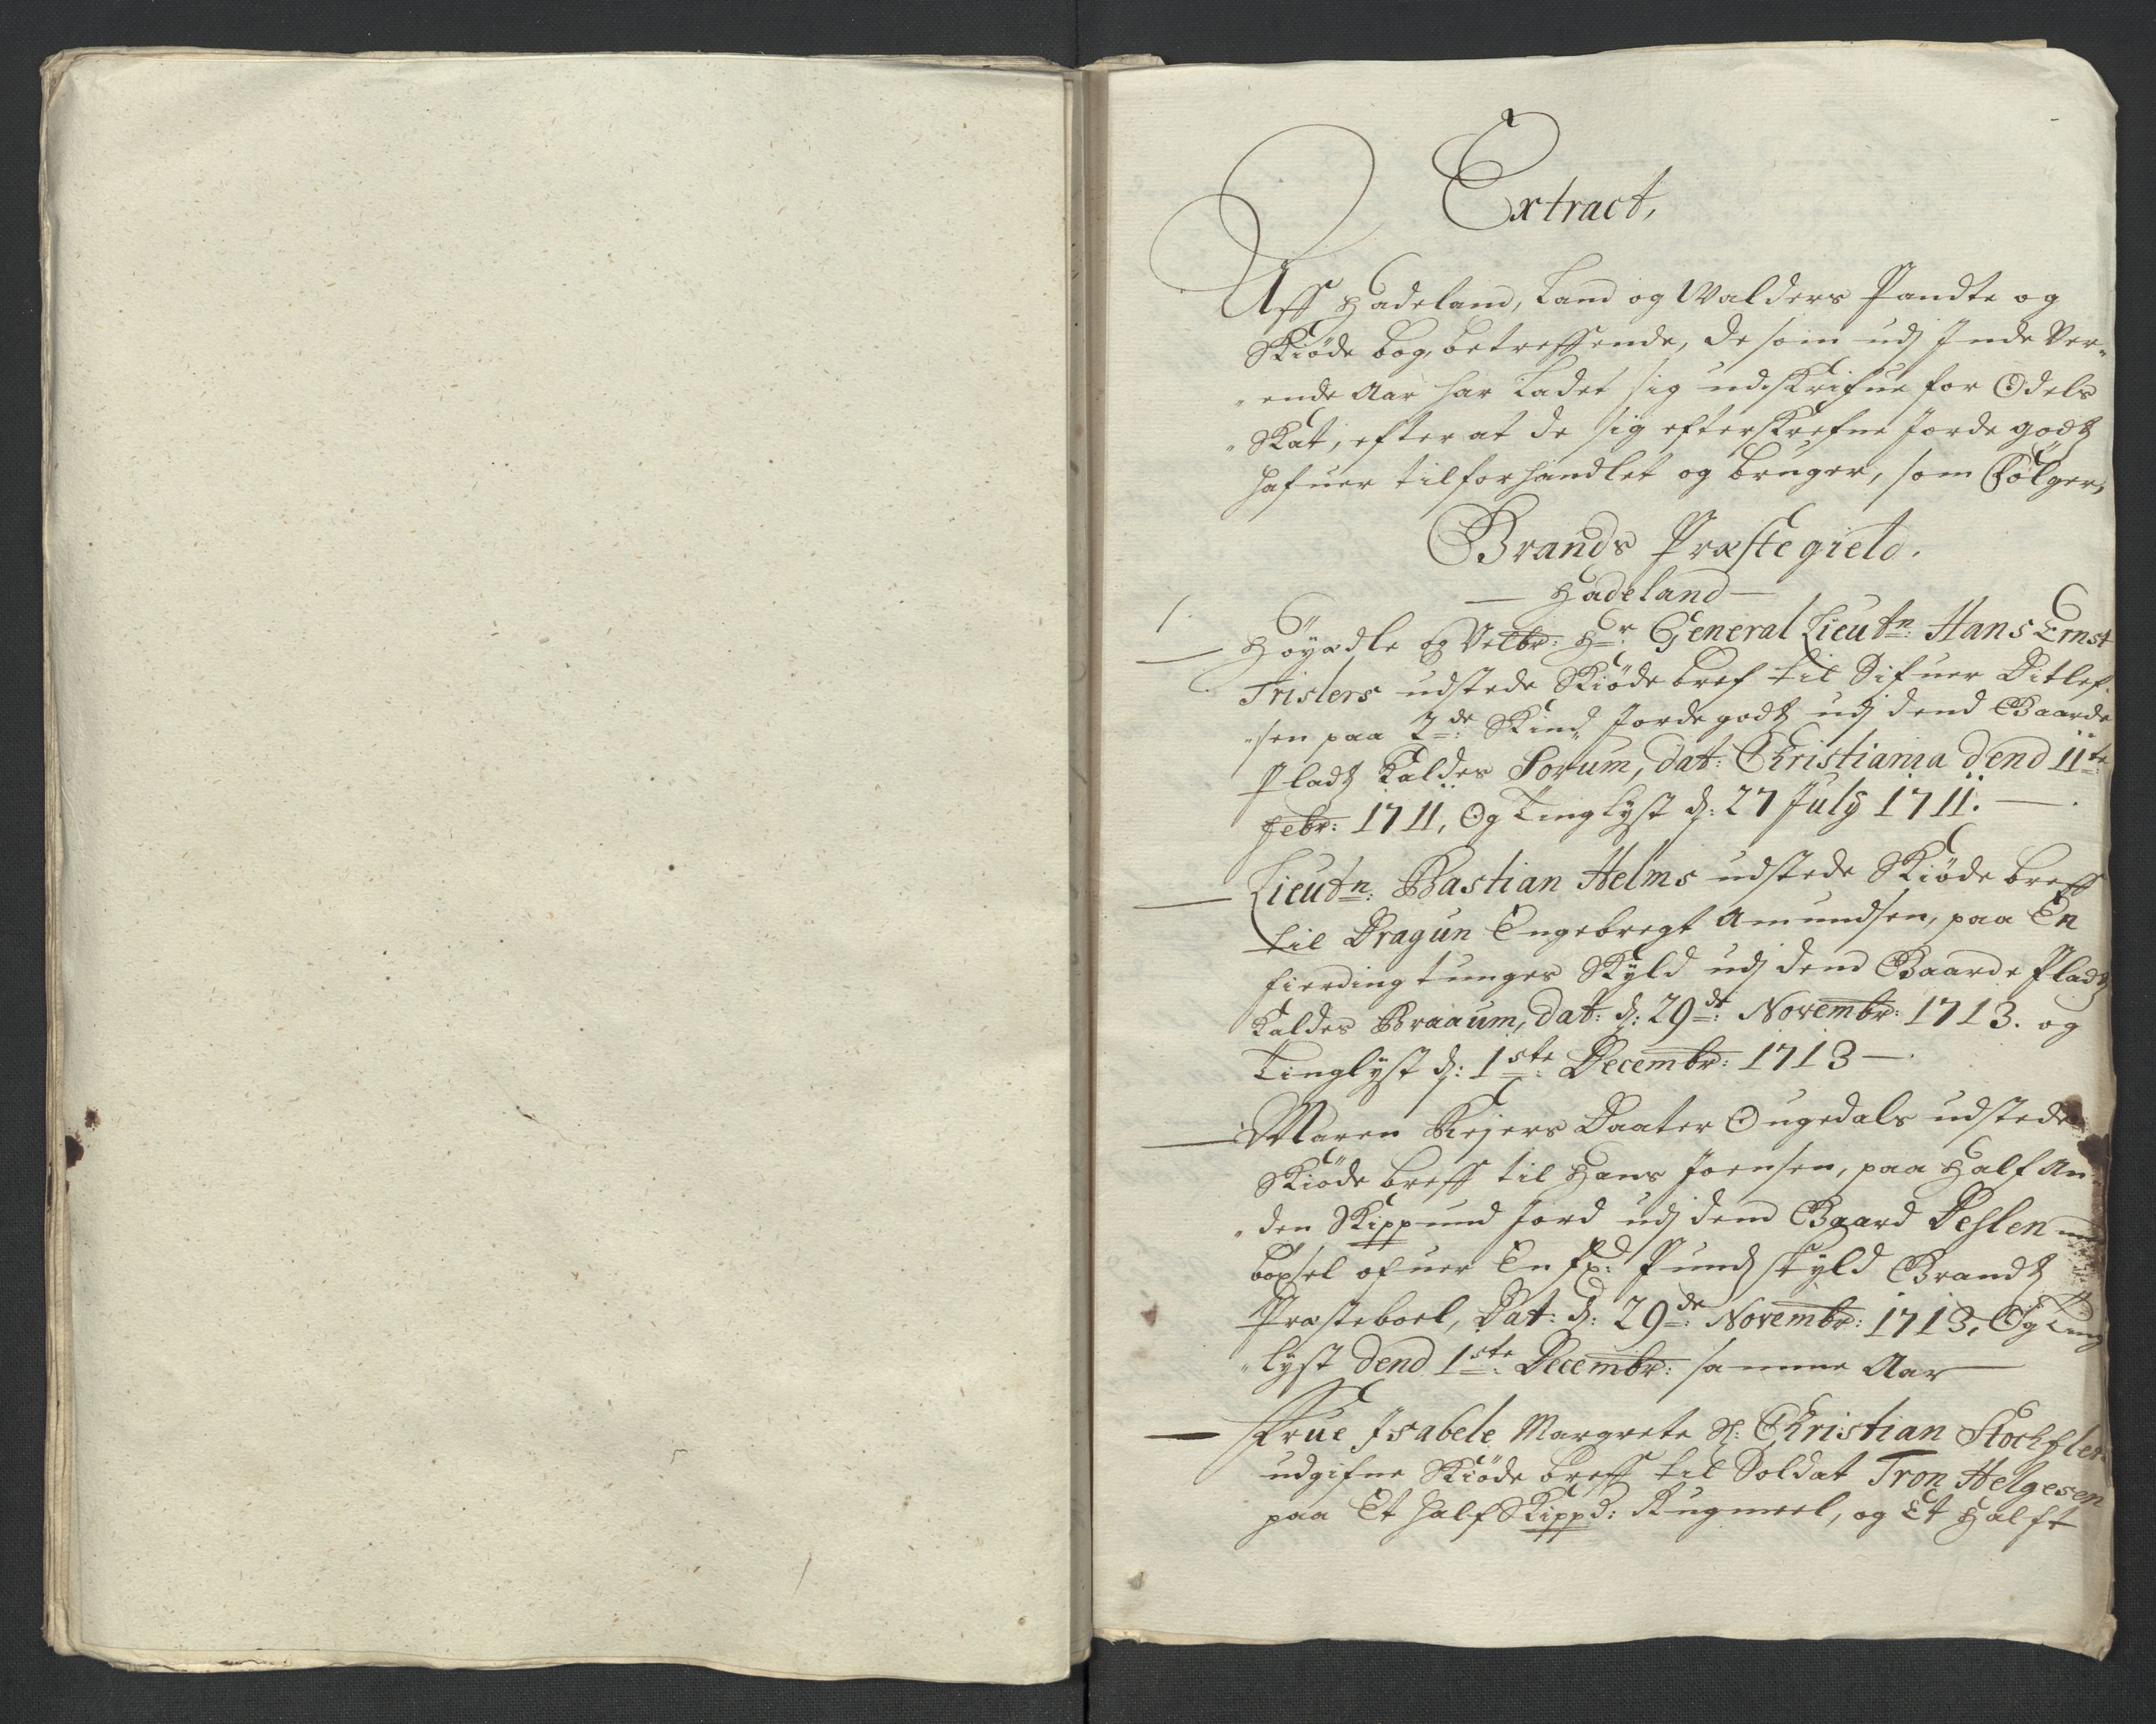 Extract,
Aff Hadeland, Land og Walders Pandte og
Skiöde bog, betreffende, de som udj Inde Vær„
„ende Aar har ladet sig udskrifue for Odels
„Skat, efter at de sig efterskrefne Jorde godtz
hafuer tilforhandlet og bruger, som Fölger,
Brands Præstegield.
— Hadeland —
1. Höyædle og Velbr: Hr: General Lieutn: Hans Ernst
Tristers udstede Skiöde bref til Sifuer Ditlef„
„sen paa 2de: Skind Jorde godtz udj dend Gaarde
Pladtz Kaldes Sorum, dat: Christiania dend 11te:
Febr: 1711, Og Tinglyst d: 27 July 1711. —
— Lieutn: Bastian Helms udstede Skiöde breff
til Dragun Engebregt Amundsen, paa En
fierding tunges Skyld udj dend Gaarde Pladtz
Kaldes Braaum, dat: d: 29de: Novembr: 1713. og
Tinglyst d: 1ste: Decembr: 1713 —
— Maren Rejers Daater Ougedals udstede
Skiöde breff til Hans Joensen, paa Half An„
„den Skippund Jord udj dend Gaard Dehlen
böxsel ofuer En Fr: Pundz skyld Brandtz
Præsteboel, Dat: d: 29de: Novembr: 1713, Og Ting
„lyst dend 1ste: Decembr: samme Aar —
— Frue Isabele Margrete Sl: Christian Stochflet
udgifue Skiöde breff til Soldat Tron Helgesen
paa Et half Skippd: Rugmeel, og Et halft